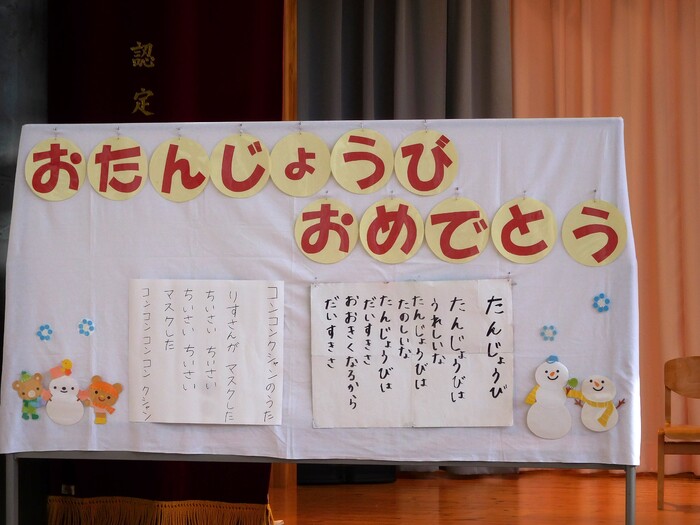 認定
おたんじょうび
おめでとう
たんじょうび
たんじょうびは
うれしいな
たんじょうびは
たのしいな
たんじょうびは
だいすきさ
おおきくなるから
だいすきさ
コンコンクシャンのうた
りすさんが マスクした
ちいさい ちいさい
ちいさい ちいさい
マスクした
コンコンコンコン クシャン